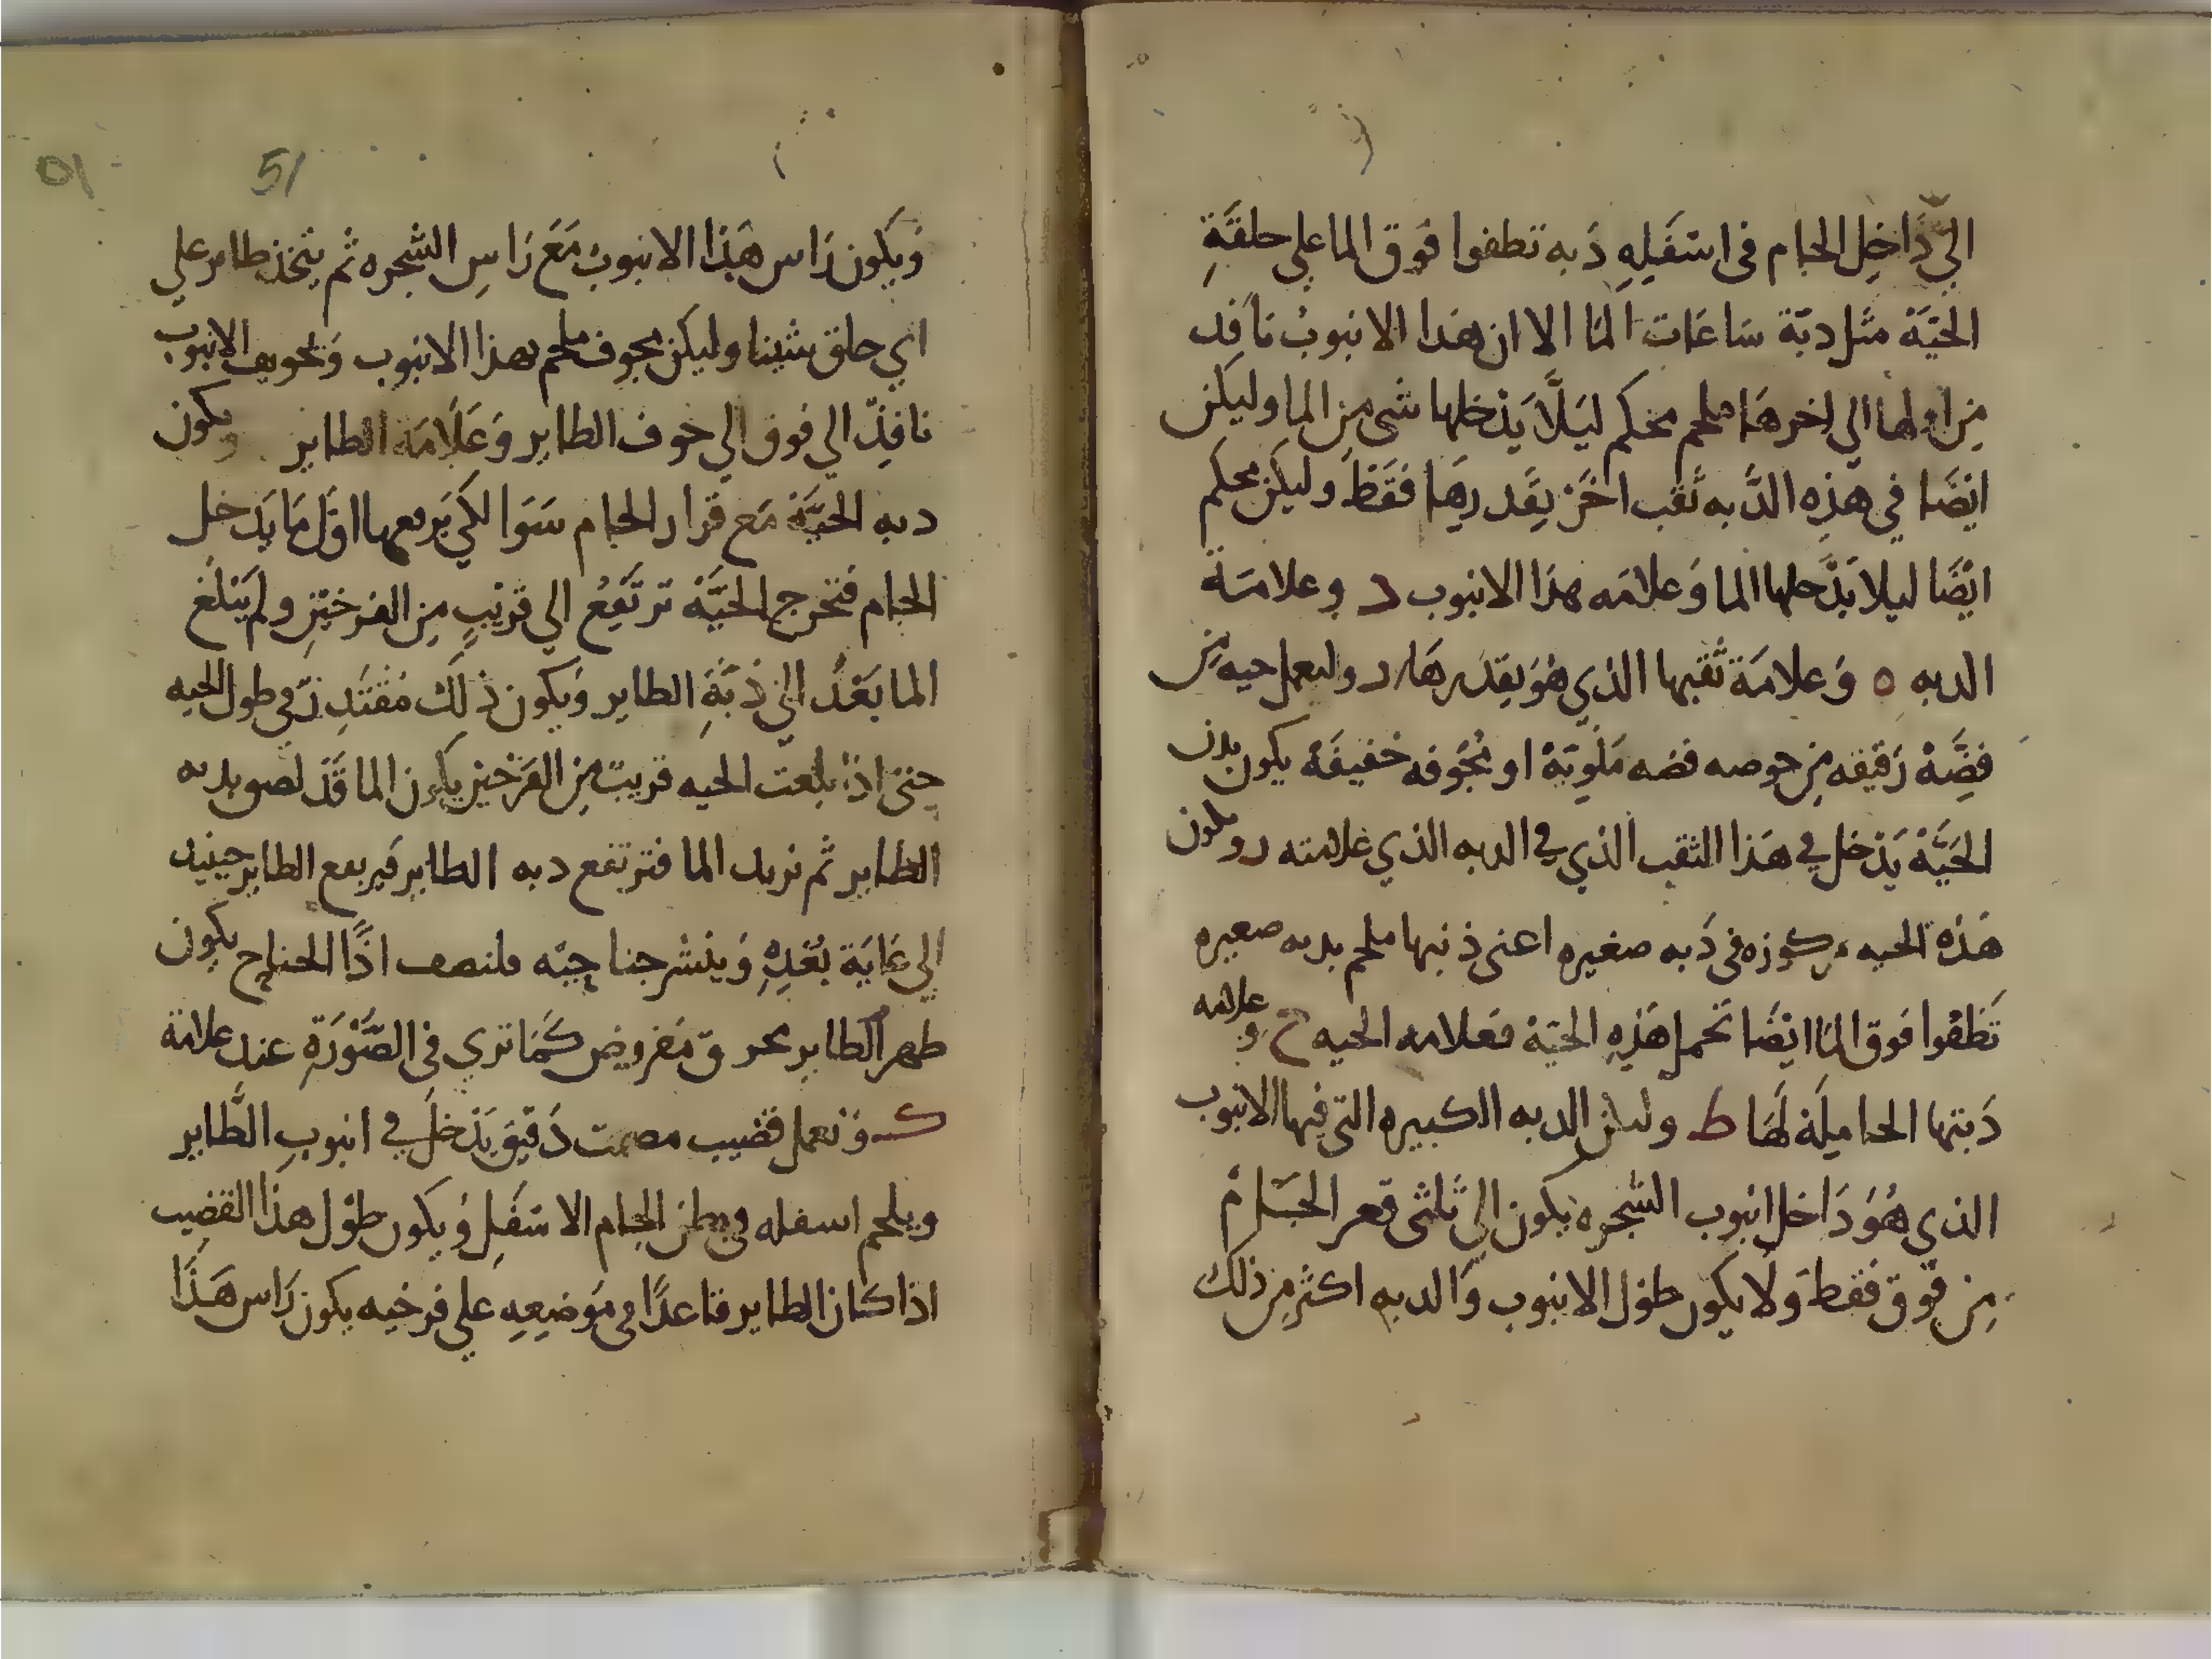 الي دَاخِل الجام في اسَفَلِهِ دَبه تطفوا فَوق الما علي حلقَةِ
الحَيَّة مثل دبّة سَاعَات المَا الا ان هَذا الانبوبُ نَافِد
مِن اولها الي اخرهَا ملحم محكم ليَلَّا يَدْخلها شى مِن الما وليكن
ايضَا في هَذِه الدَّبه ثَقب اخَرْ يقَدرهَا فقَطْ وليكن محكم
ايْضَا ليلا يَدَّخلها الما وَعلامَه هذا الانبوب د وعلامَة
الدبه ه وَعلامَة ثَقبها الذي هوَ بقَدرهَا ر وليعمل حيه مِن
فِضَّهْ رَقيقه مِن خوصه فضه مَلَويَةْ او مُجَوفه خفيفَهْ يكون بدن
الحَيَّهْ يَدْخل في هَذا الثقب الذي في الدبه الذي عَلامته ر وتكون
هَذه الحيه مركوزه في دَبه صغيره اعني ذنبها ملحم بدبه صغيره
تَطفُوا فوق المَا ايضَا تَحمل هَذِهِ الحَيَهْ فعلامه الحيه ح وعلامه
دَبتها الحاملَة لَهَا ط وليكن الدبه الكبيره التي فيها الانبوب
الذي هُوَ دَاخل انبوب الشجره يكون الي ثَلثى قعر الجَام
مِن فَوق فَقطَ وَلا يكون طوْل الانبوب وَالدبه اكثر مِن ذلك
51
٥١
وَيكون رَاس هَذا الانبوبُ مَعَ رَاسِ الشجره ثم يتخذ طاير علي
اي حلق شينا وليكن مجوف ملحم بهذا الانبوب وَتجويف الانبوب
نافِذّ الي فوق الي جَوف الطاير وَعَلَامَة الطاير ويكون
دبه الحيَّةْ مَع قرار الجام سَوَا لكَي يَرفعها اوّل مَا يَدخل
الجام فتخرج الحَيَّه ترتَفِعُ الي قَريْبٍ مِن الفرخَيْنِ ولم يَبْلُغ
الما بَعْدُ الي دَبَّةِ الطاير وَيكون ذلَك مُقتَدِرّ في طول الحيه
حتى اذا بلغت الحيه قريبٌ مِن الفرخين يكون الما قَدْ لصق بدبه
الطاير ثم نزيد الما فترتفع دبه الطاير فيرفع الطاير حينيد
الي غَايَة بُعْدِهِ وَينشر جناحيْه فلنصف اذًا الجناح يكون
ظهر الطاير محروق مَفروض كَمَا تري في الصّوْرَةِ عند علامة
ك وَنعمل قضيب مصمت دَقيق يَدْخَل في انبوبِ الطَّاير
ويلحم اسفله في بطن الجام الاسَفَلِ وَيكون طوْل هذا القضيب
اذا كان الطاير قاعدًا في مَوَضِعِهِ علي فرخيه يكون رَاس هَذَا